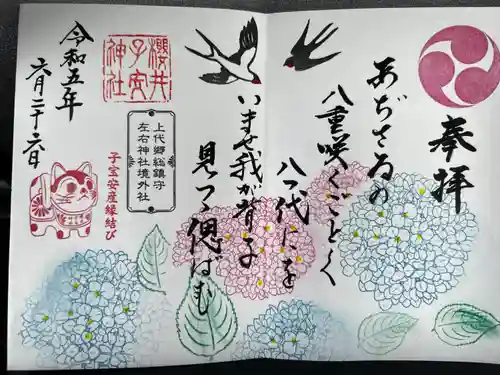 奉拝
あぢさゐの
八重咲くごとく
八つ代にを
いませ我が背子
見つつ偲ばむ
上代郷総鎮守
左右神社境外社
櫻井
子安
神社
子宝安産縁結び
令和五年
六月二十六日